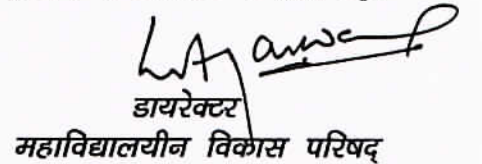 डायरेक्टर
महाविद्यालयीन विकास परिषद्